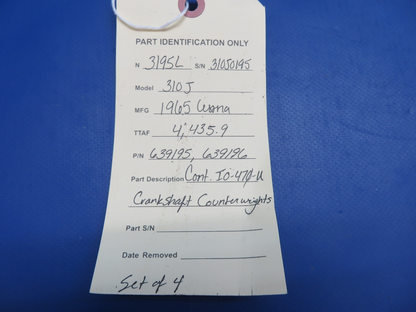 PART IDENTIFICATION ONLY
N 3195L S/N 310J0195
Model 310J
MFG 1965 Cessna
TTAF 4,435.9
P/N 639195, 639196
Part Description Cont. IO-470-U
Crankshaft Counterweights
Part S/N
Date Removed
Set of 4